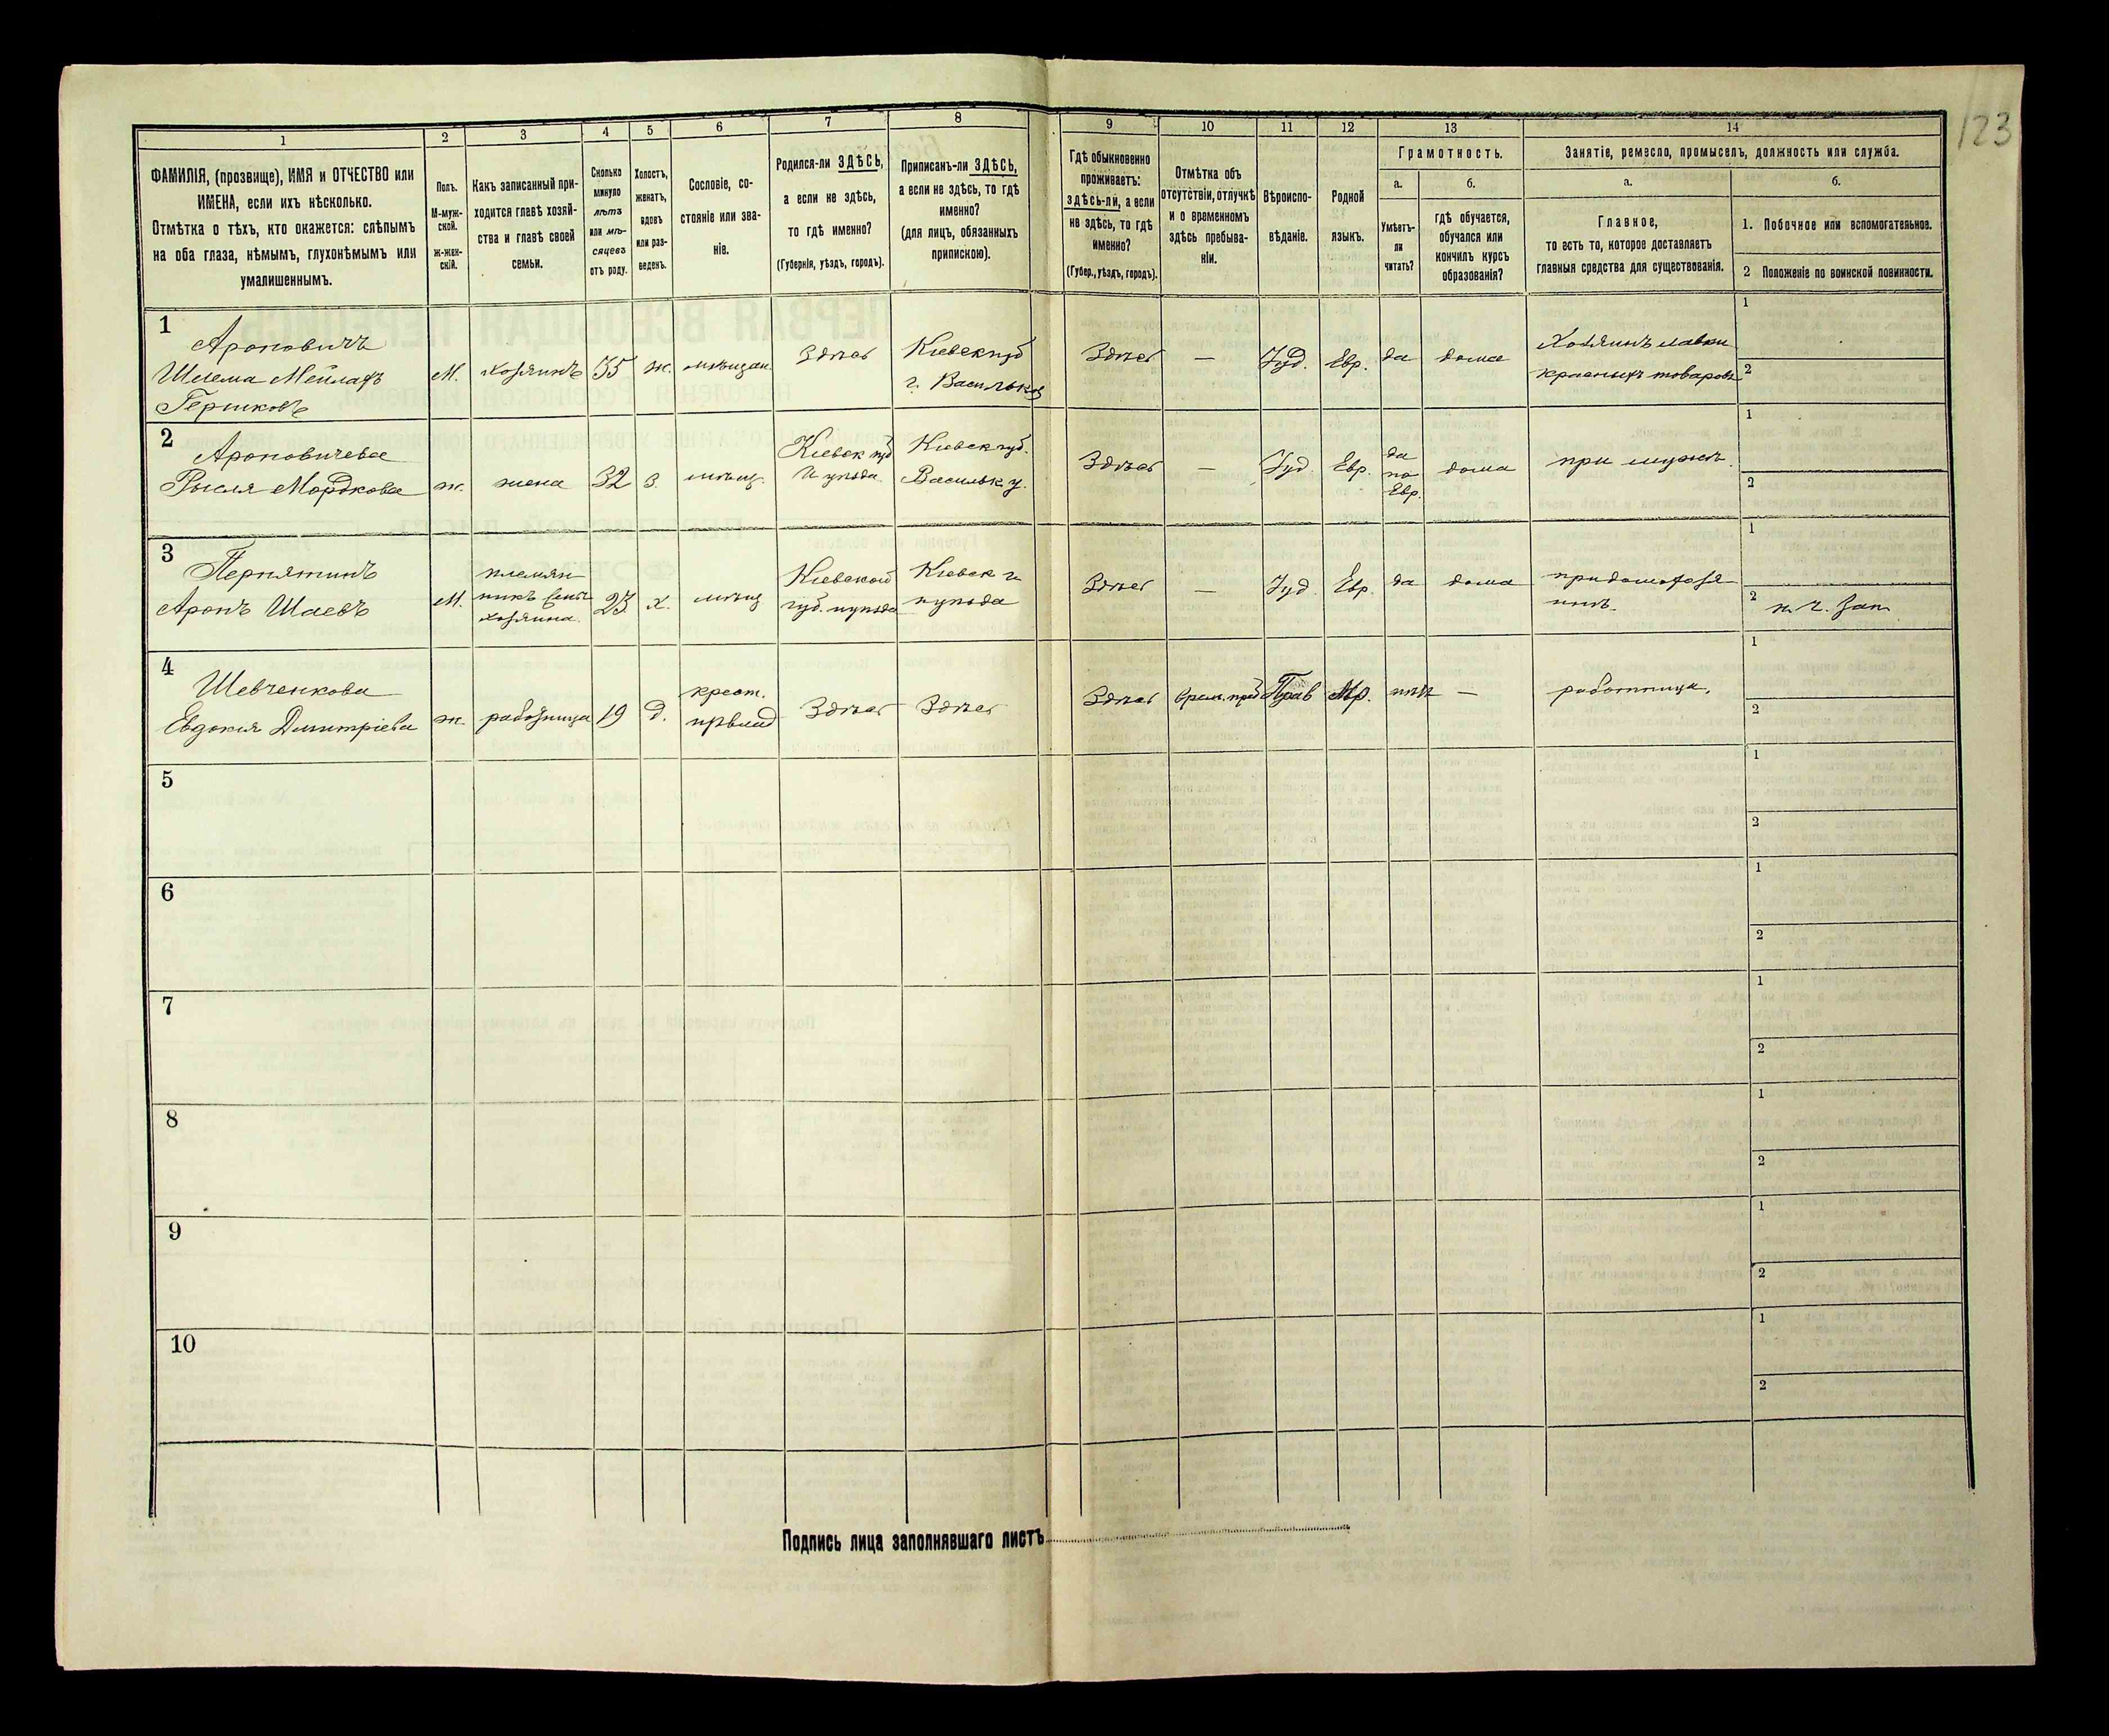 123
1
2
3
4
5
6
7
8
9
10
11
12
13
14
ФАМИЛІЯ, (прозвище), ИМЯ и ОТЧЕСТВО или
ИМЕНА, если ихъ нѣсколько.
Отмѣтка о тѣхъ, кто окажется: слѣпымъ
на оба глаза, нѣмымъ, глухонѣмымъ или
умалишеннымъ.
Полъ.
М-муж-
ской.
ж-жен-
скій.
Какъ записанный при-
ходится главѣ хозяй-
ства и главѣ своей
семьи.
Сколько
минуло
лѣтъ
или мѣ-
сяцевъ
отъ роду.
Холостъ,
женатъ,
вдовъ
или раз-
веденъ.
Сословіе, со-
стояніе или зва-
ніе.
Родился-ли ЗДѢСЬ,
а если не здѣсь,
то гдѣ именно?
(Губернія, уѣздъ, городъ).
Приписанъ-ли ЗДѢСЬ,
а если не здѣсь, то гдѣ
именно?
(для лицъ, обязанныхъ
припискою).
Гдѣ обыкновенно
проживаетъ:
здѣсь-ли, а если
не здѣсь, то гдѣ
именно?
(Губер., уѣздъ, городъ).
Отмѣтка объ
отсутствіи, отлучкѣ
и о временномъ
здѣсь пребыва-
ніи.
Вѣроиспо-
вѣданіе.
Родной
языкъ.
Грамотность.
а.
б.
Умѣетъ-
ли
читать?
гдѣ обучается,
обучался или
кончилъ курсъ
образованія?
Занятіе, ремесло, промыселъ, должность или служба.
а.
б.
Главное,
то есть то, которое доставляетъ
главныя средства для существованія.
1. Побочное или вспомогательное.
2 Положеніе по воинской повинности.
1
Ароновичъ
Шлема Мейлахъ
Гершковъ
М.
хозяинъ
35
ж.
мѣщан.
Здѣсь
Кіевск губ
г. Васильков
Здѣсь
—
Іуд.
Евр.
да
дома
Хозяинъ лавки
красныхъ товаровъ
1
2
2
Ароновичева
Рысля Мордкова
ж.
жена
32
з.
мѣщ.
Кіевск губ
и уѣзда
Кіевск губ.
Васильк у.
Здѣсь
—
Іуд
Евр.
да
по
Евр.
дома
при мужѣ.
1
2
3
Аронъ Шаевъ
М.
племян
никъ
хозяина.
23
х.
мѣщ
Кіевской
губ. и уѣзда
Кіевск г
и уѣзда
Здѣсь
—
Іуд.
Евр.
да
дома
при дом. хозя
инѣ.
1
2
4
Шевченкова
Евдокія Димитріева
ж.
работница
19
д.
крест.
Здѣсь
Здѣсь
Здѣсь
Врем. преб
Прав
Мр.
нѣтъ
—
работница.
1
2
5
1
2
6
1
2
7
1
2
8
1
2
9
1
2
10
1
2
Подпись лица заполнявшаго листъ